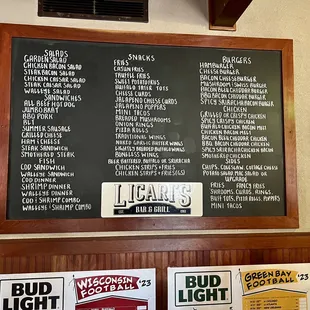 SALADS
GARDEN SALAD
CHICKEN BACON SALAD
STEAK BACON SALAD
CHICKEN CAESAR SALAD
STEAK CAESAR SALAD
WALLEYE SALAD
SANDWICHES
ALL BEEF HOT DOG
JUMBO BRAT
BBQ PORK
BLT
SUMMER SAUSAGE
GRILLED CHEESE
HAM & CHEESE
STEAK SANDWICH
SMOTHERED STEAK
FISH
COD SANDWICH
WALLEYE SANDWICH
COD DINNER
SHRIMP DINNER
WALLEYE DINNER
COD & SHRIMP COMBO
WALLEYE & SHRIMP COMBO
SNACKS
FRIES
CAJUN FRIES
TRUFFLE FRIES
SWEET POTATO FRIES
BUFFALO TATER TOTS
CHEESE CURDS
JALAPENO CHEESE CURDS
JALAPENO POPPERS
MINI TACOS
BREADED MUSHROOMS
ONION RINGS
PIZZA ROLLS
TRADITIONAL WINGS
NAKED GARLIC BUTTER WINGS
SMOTHERED
BONELESS WINGS
BLUE BUFFALO & SRIRACHA
CHICKEN STRIPS
CHICKEN STRIPS & FRIES
BURGERS
HAMBURGER
CHEESEBURGER
BACON CHEESEBURGER
MUSHROOM & SWISS BURGER
BACON BLEU CHEDDAR BURGER
BBQ BACON CHEDDAR BURGER
SPICY BURGER
CHICKEN
GRILLED OR CRISPY CHICKEN
CRISPY CHICKEN BACON
BUFFALO CHICKEN BACON MELT
BACON BLEU CHEDDAR CHICKEN
BBQ BACON CHEDDAR CHICKEN
SPICY CHICKEN
SMOTHERED CHICKEN
SIDES
CHIPS, COLESLAW, COTTAGE CHEESE
OR POTATO SALAD
UPGRADE
FRIES FANCY FRIES
SHROOMS, CURDS, RINGS,
BUFF TOTS, PIZZA ROLLS, POPPERS
MINI TACOS
LICARI'S
BAR & GRILL
BUD
LIGHT
WISCONSIN '23
FOOTBALL
BUD
LIGHT
GREEN BAY '23
FOOTBALL